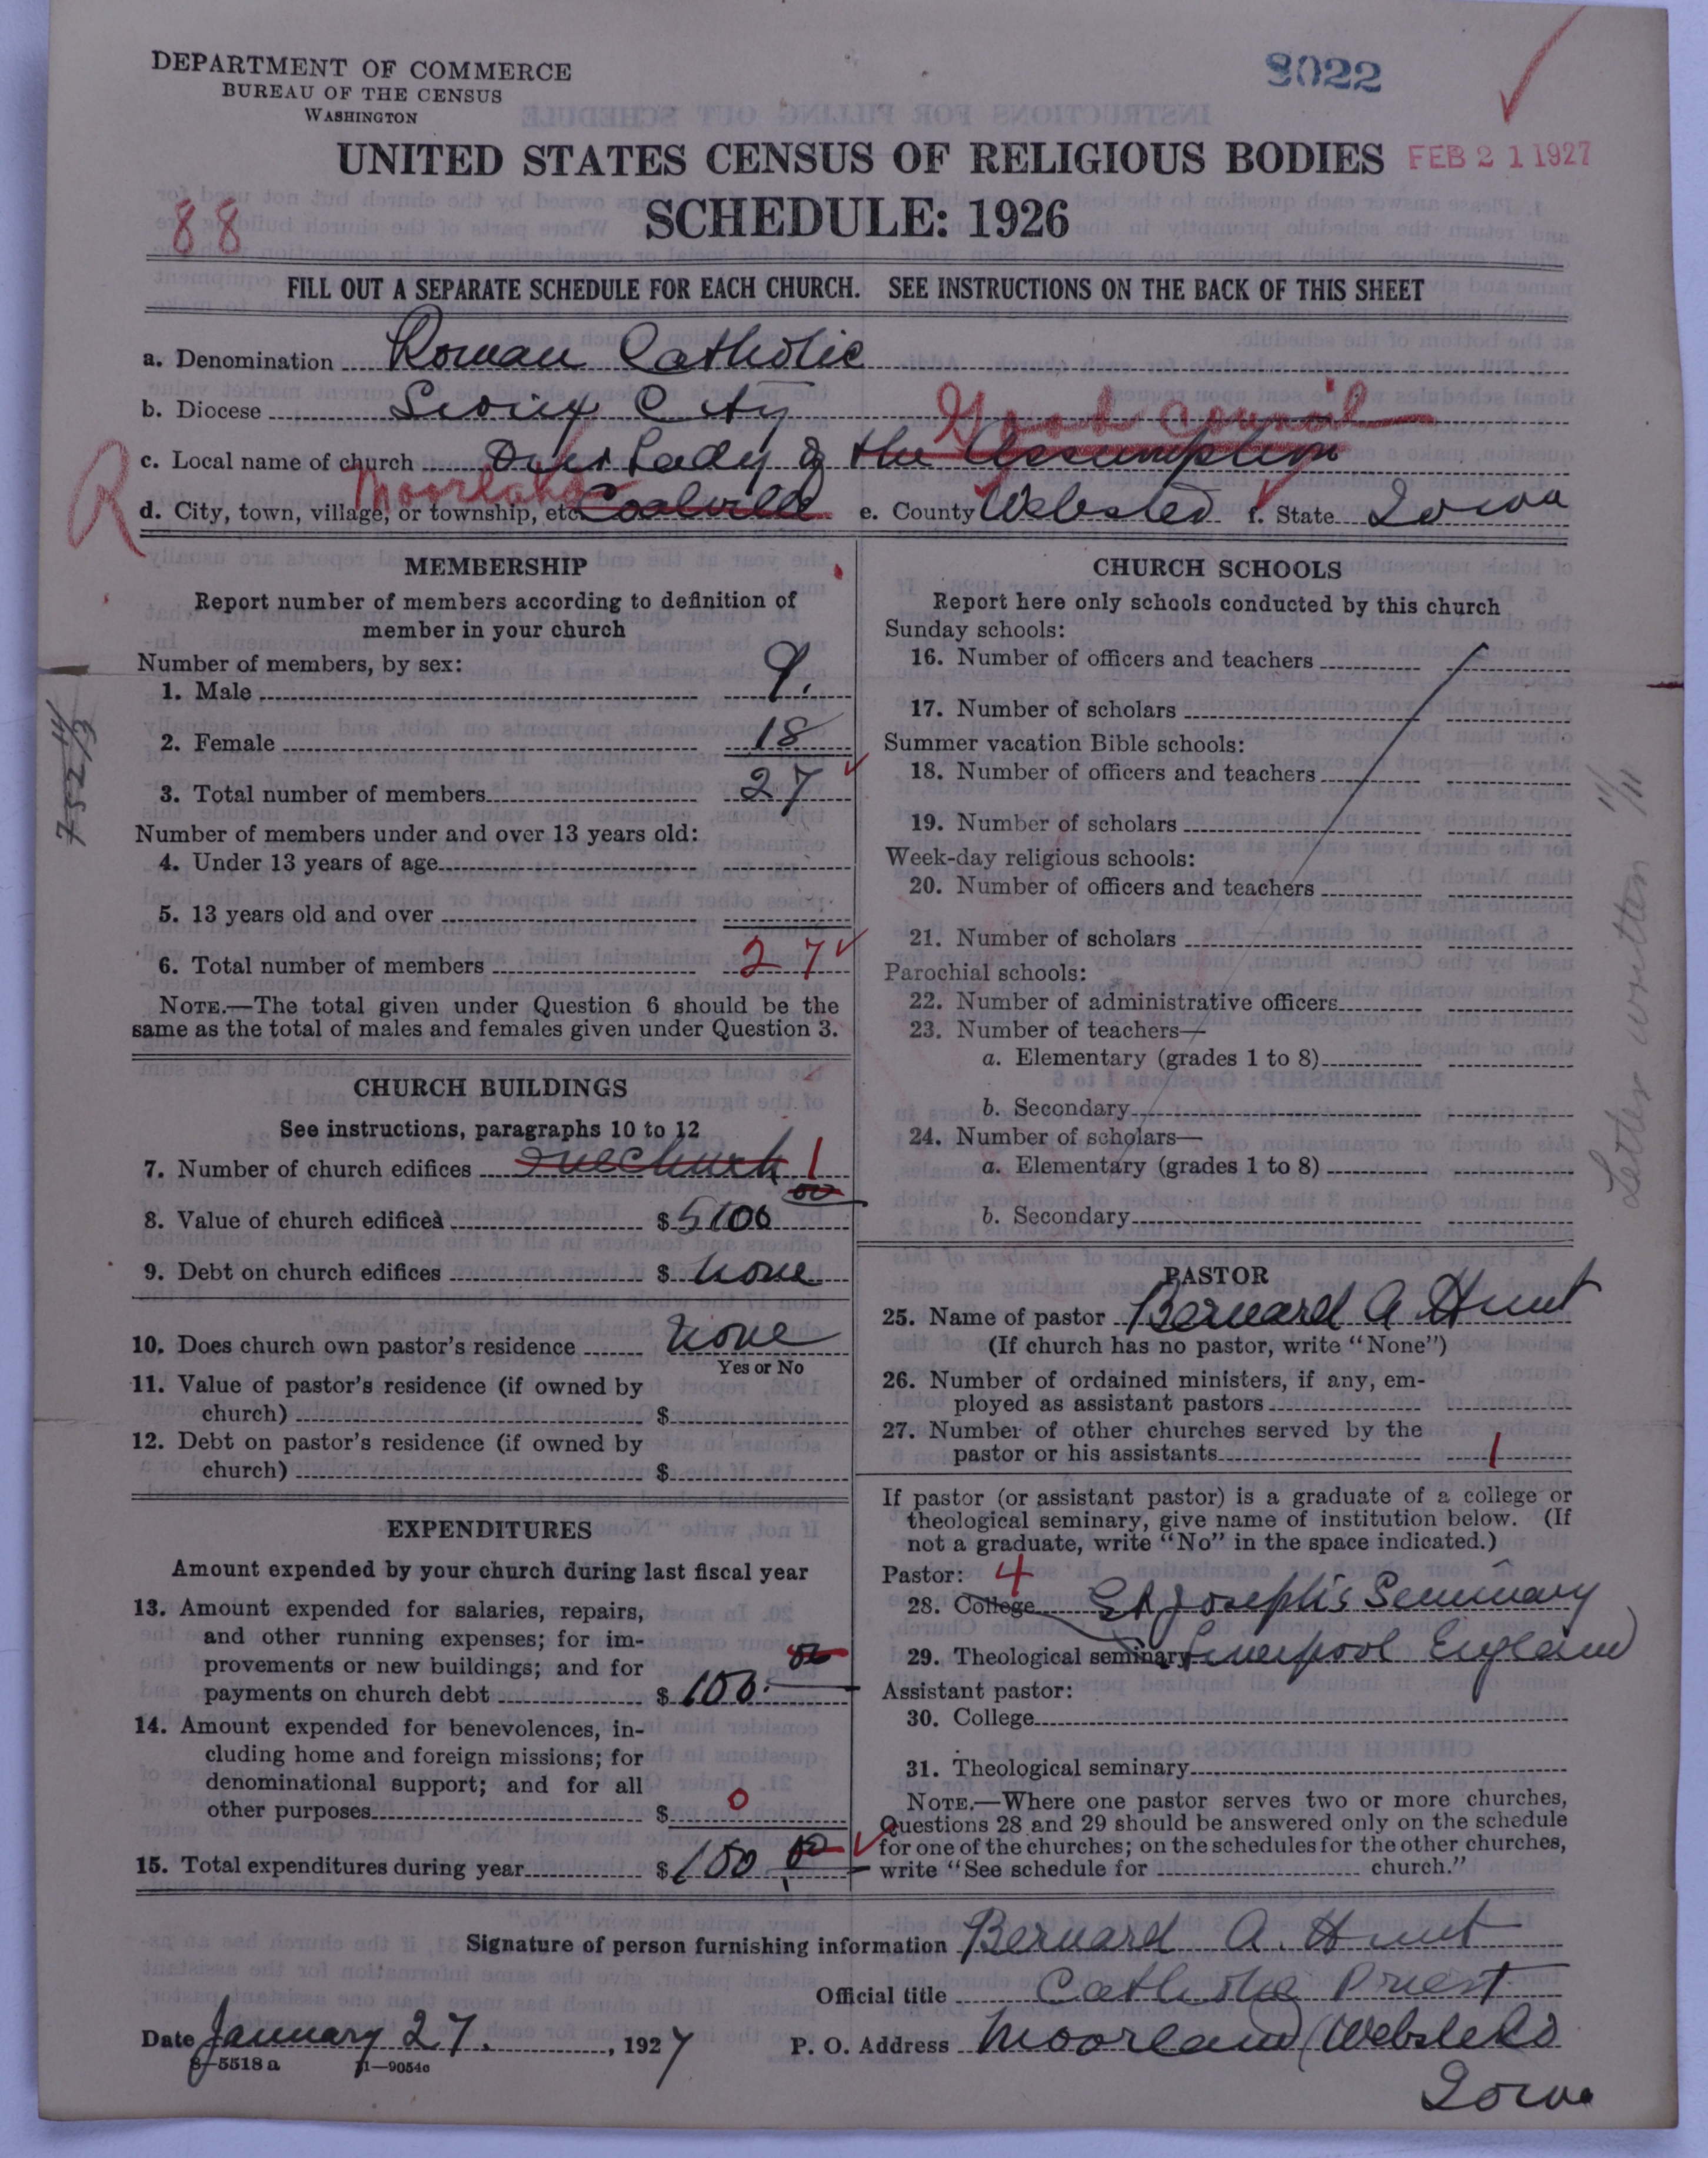 DEPARTMENT OF COMMERCE
BUREAU OF THE CENSUS
WASHINGTON
8022
UNITED STATES CENSUS OF RELIGIOUS BODIES
FEB 21 1927
88
SCHEDULE: 1926
FILL OUT A SEPARATE SCHEDULE FOR EACH CHURCH. SEE INSTRUCTIONS ON THE BACK OF THIS SHEET
a. Denomination Roman Catholic
b. Diocese Sioux City
Good Council
c. Local name of church Our Lady of the Assumption
R
Moorland
d. City, town, village, or township, etc. Coalville e. County Webster f. State Iowa
MEMBERSHIP
Report number of members according to definition of
member in your church
Number of members, by sex:
1. Male 9.
2. Female 18
3. Total number of members 27
Number of members under and over 13 years old:
4. Under 13 years of age
5. 13 years old and over
6. Total number of members 27
NOTE.—The total given under Question 6 should be the
same as the total of males and females given under Question 3.
CHURCH BUILDINGS
See instructions, paragraphs 10 to 12
7. Number of church edifices one Church 1
8. Value of church edifices $5100 00
9. Debt on church edifices $ none
10. Does church own pastor's residence none
Yes or No
11. Value of pastor's residence (if owned by
church) $
12. Debt on pastor's residence (if owned by
church) $
EXPENDITURES
Amount expended by your church during last fiscal year
13. Amount expended for salaries, repairs,
and other running expenses; for im-
provements or new buildings; and for
payments on church debt $ 100. 00
14. Amount expended for benevolences, in-
cluding home and foreign missions; for
denominational support; and for all
other purposes $ 0
15. Total expenditures during year $ 100 00
CHURCH SCHOOLS
Report here only schools conducted by this church
Sunday schools:
16. Number of officers and teachers
17. Number of scholars
Summer vacation Bible schools:
18. Number of officers and teachers
19. Number of scholars
Week-day religious schools:
20. Number of officers and teachers
21. Number of scholars
Parochial schools:
22. Number of administrative officers
23. Number of teachers—
a. Elementary (grades 1 to 8)
b. Secondary
24. Number of scholars—
a. Elementary (grades 1 to 8)
b. Secondary
Letter written 11/11
PASTOR
25. Name of pastor Bernard A Hunt
(If church has no pastor, write "None")
26. Number of ordained ministers, if any, em-
ployed as assistant pastors
27. Number of other churches served by the
pastor or his assistants 1
If pastor (or assistant pastor) is a graduate of a college or
theological seminary, give name of institution below. (If
not a graduate, write "No" in the space indicated.)
Pastor: 4
28. College St Joseph's Seminary
29. Theological seminary Liverpool England
Assistant pastor:
30. College
31. Theological seminary
NOTE.—Where one pastor serves two or more churches,
Questions 28 and 29 should be answered only on the schedule
for one of the churches; on the schedules for the other churches,
write "See schedule for church."
Signature of person furnishing information Bernard A. Hunt
Official title Catholic Priest
Date January 27. , 1927 P. O. Address Moorland (Webster Co
8—5518 a 11—9054c
Iowa